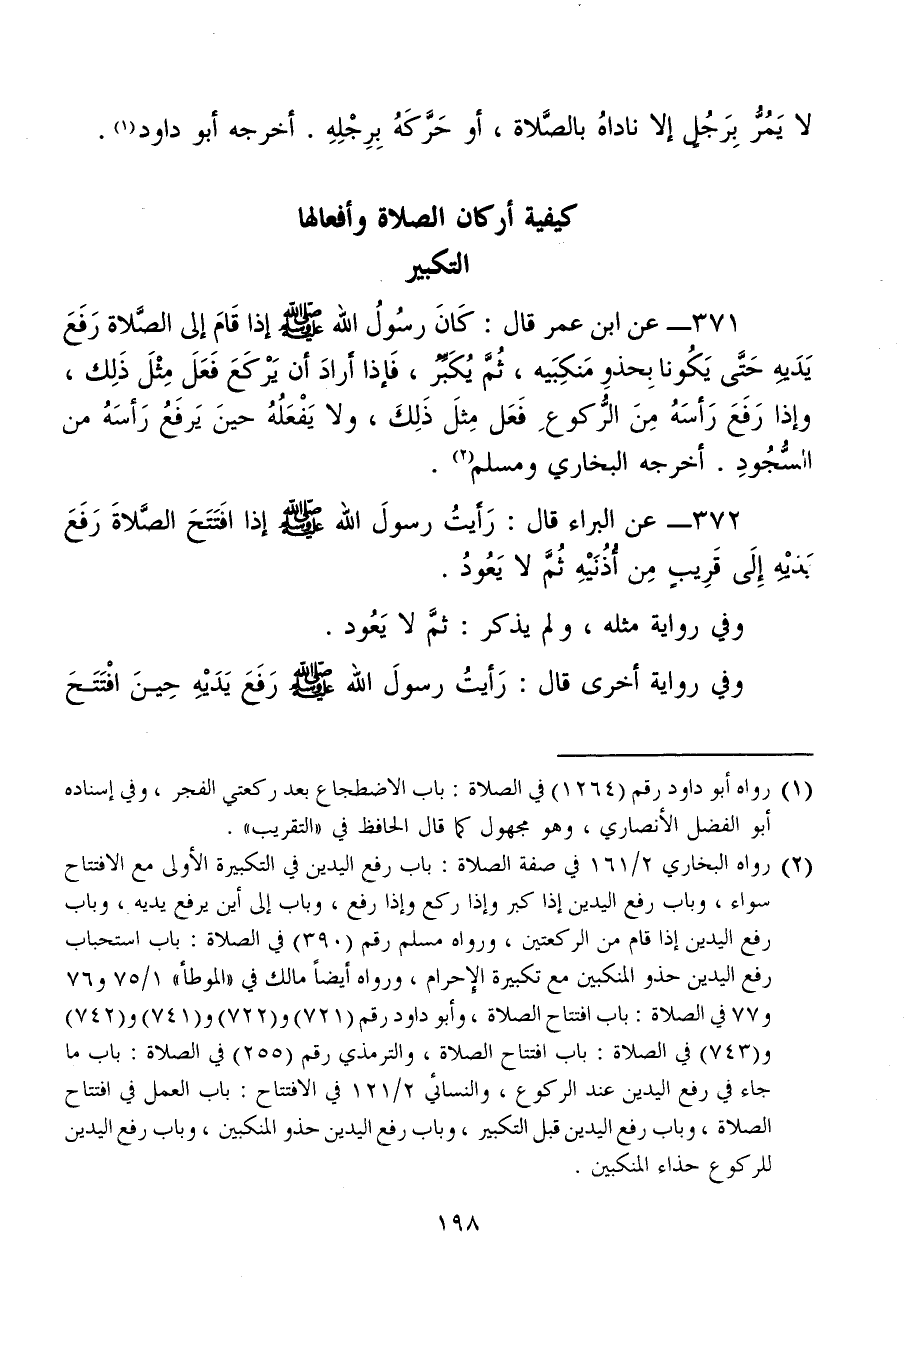 لا يَمُرُّ بِرَجُلٍ إلا ناداهُ بالصَّلاة ، أو حَرَّكَهُ بِرِجْلِهِ . أخرجه أبو داود(١) .
كيفية أركان الصلاة وأفعالها
التكبير
٣٧١ــ عن ابن عمر قال : كَانَ رسُولُ الله ﷺ إذا قَامَ إلى الصَّلاة رَفَعَ
يَدَيهِ حَتَّى يَكُونا بِحذوِ مَنكِبَيه ، ثُمَّ يُكَبِّرُ ، فَإذا أرادَ أن يَرْكَعَ فَعَلَ مِثْلَ ذَلِك ،
وإذا رَفَعَ رَأسَهُ مِنَ الرُّكوعِ فَعَل مِثلَ ذَلِكَ ، ولا يَفْعَلُهُ حينَ يَرفَعُ رَأسَهُ من
السُّجُودِ . أخرجه البخاري ومسلم(٢) .
٣٧٢ــ عن البراء قال : رَأيتُ رسولَ الله ﷺ إذا افَتَتَحَ الصَّلاةَ رَفَعَ
يَدَيْهِ إِلَى قَرِيبٍ مِن أُذُنَيْهِ ثُمَّ لا يَعُودُ .
وفي رواية مثله ، ولم يذكر : ثمَّ لا يَعُود .
وفي رواية أخرى قال : رَأيتُ رسولَ الله ﷺ رَفَعَ يَدَيْهِ حِينَ افْتَتَحَ
(١) رواه أبو داود رقم (١٢٦٤) في الصلاة : باب الاضطجاع بعد ركعتي الفجر ، وفي إسناده
أبو الفضل الأنصاري ، وهو مجهول كما قال الحافظ في «التقريب» .
(٢) رواه البخاري ١٦١/٢ في صفة الصلاة : باب رفع اليدين في التكبيرة الأولى مع الافتتاح
سواء ، وباب رفع اليدين إذا كبر وإذا ركع وإذا رفع ، وباب إلى أين يرفع يديه ، وباب
رفع اليدين إذا قام من الركعتين ، ورواه مسلم رقم (٣٩٠) في الصلاة : باب استحباب
رفع اليدين حذو المنكبين مع تكبيرة الإحرام ، ورواه أيضاً مالك في «الموطأ» ٧٥/١ و٧٦
و٧٧ في الصلاة : باب افتتاح الصلاة ، وأبو داود رقم (٧٢١) و(٧٢٢) و(٧٤١) و(٧٤٢)
و(٧٤٣) في الصلاة : باب افتتاح الصلاة ، والترمذي رقم (٢٥٥) في الصلاة : باب ما
جاء في رفع اليدين عند الركوع ، والنسائي ١٢١/٢ في الافتتاح : باب العمل في افتتاح
الصلاة ، وباب رفع اليدين قبل التكبير ، وباب رفع اليدين حذو المنكبين ، وباب رفع اليدين
للركوع حذاء المنكبين .
١٩٨